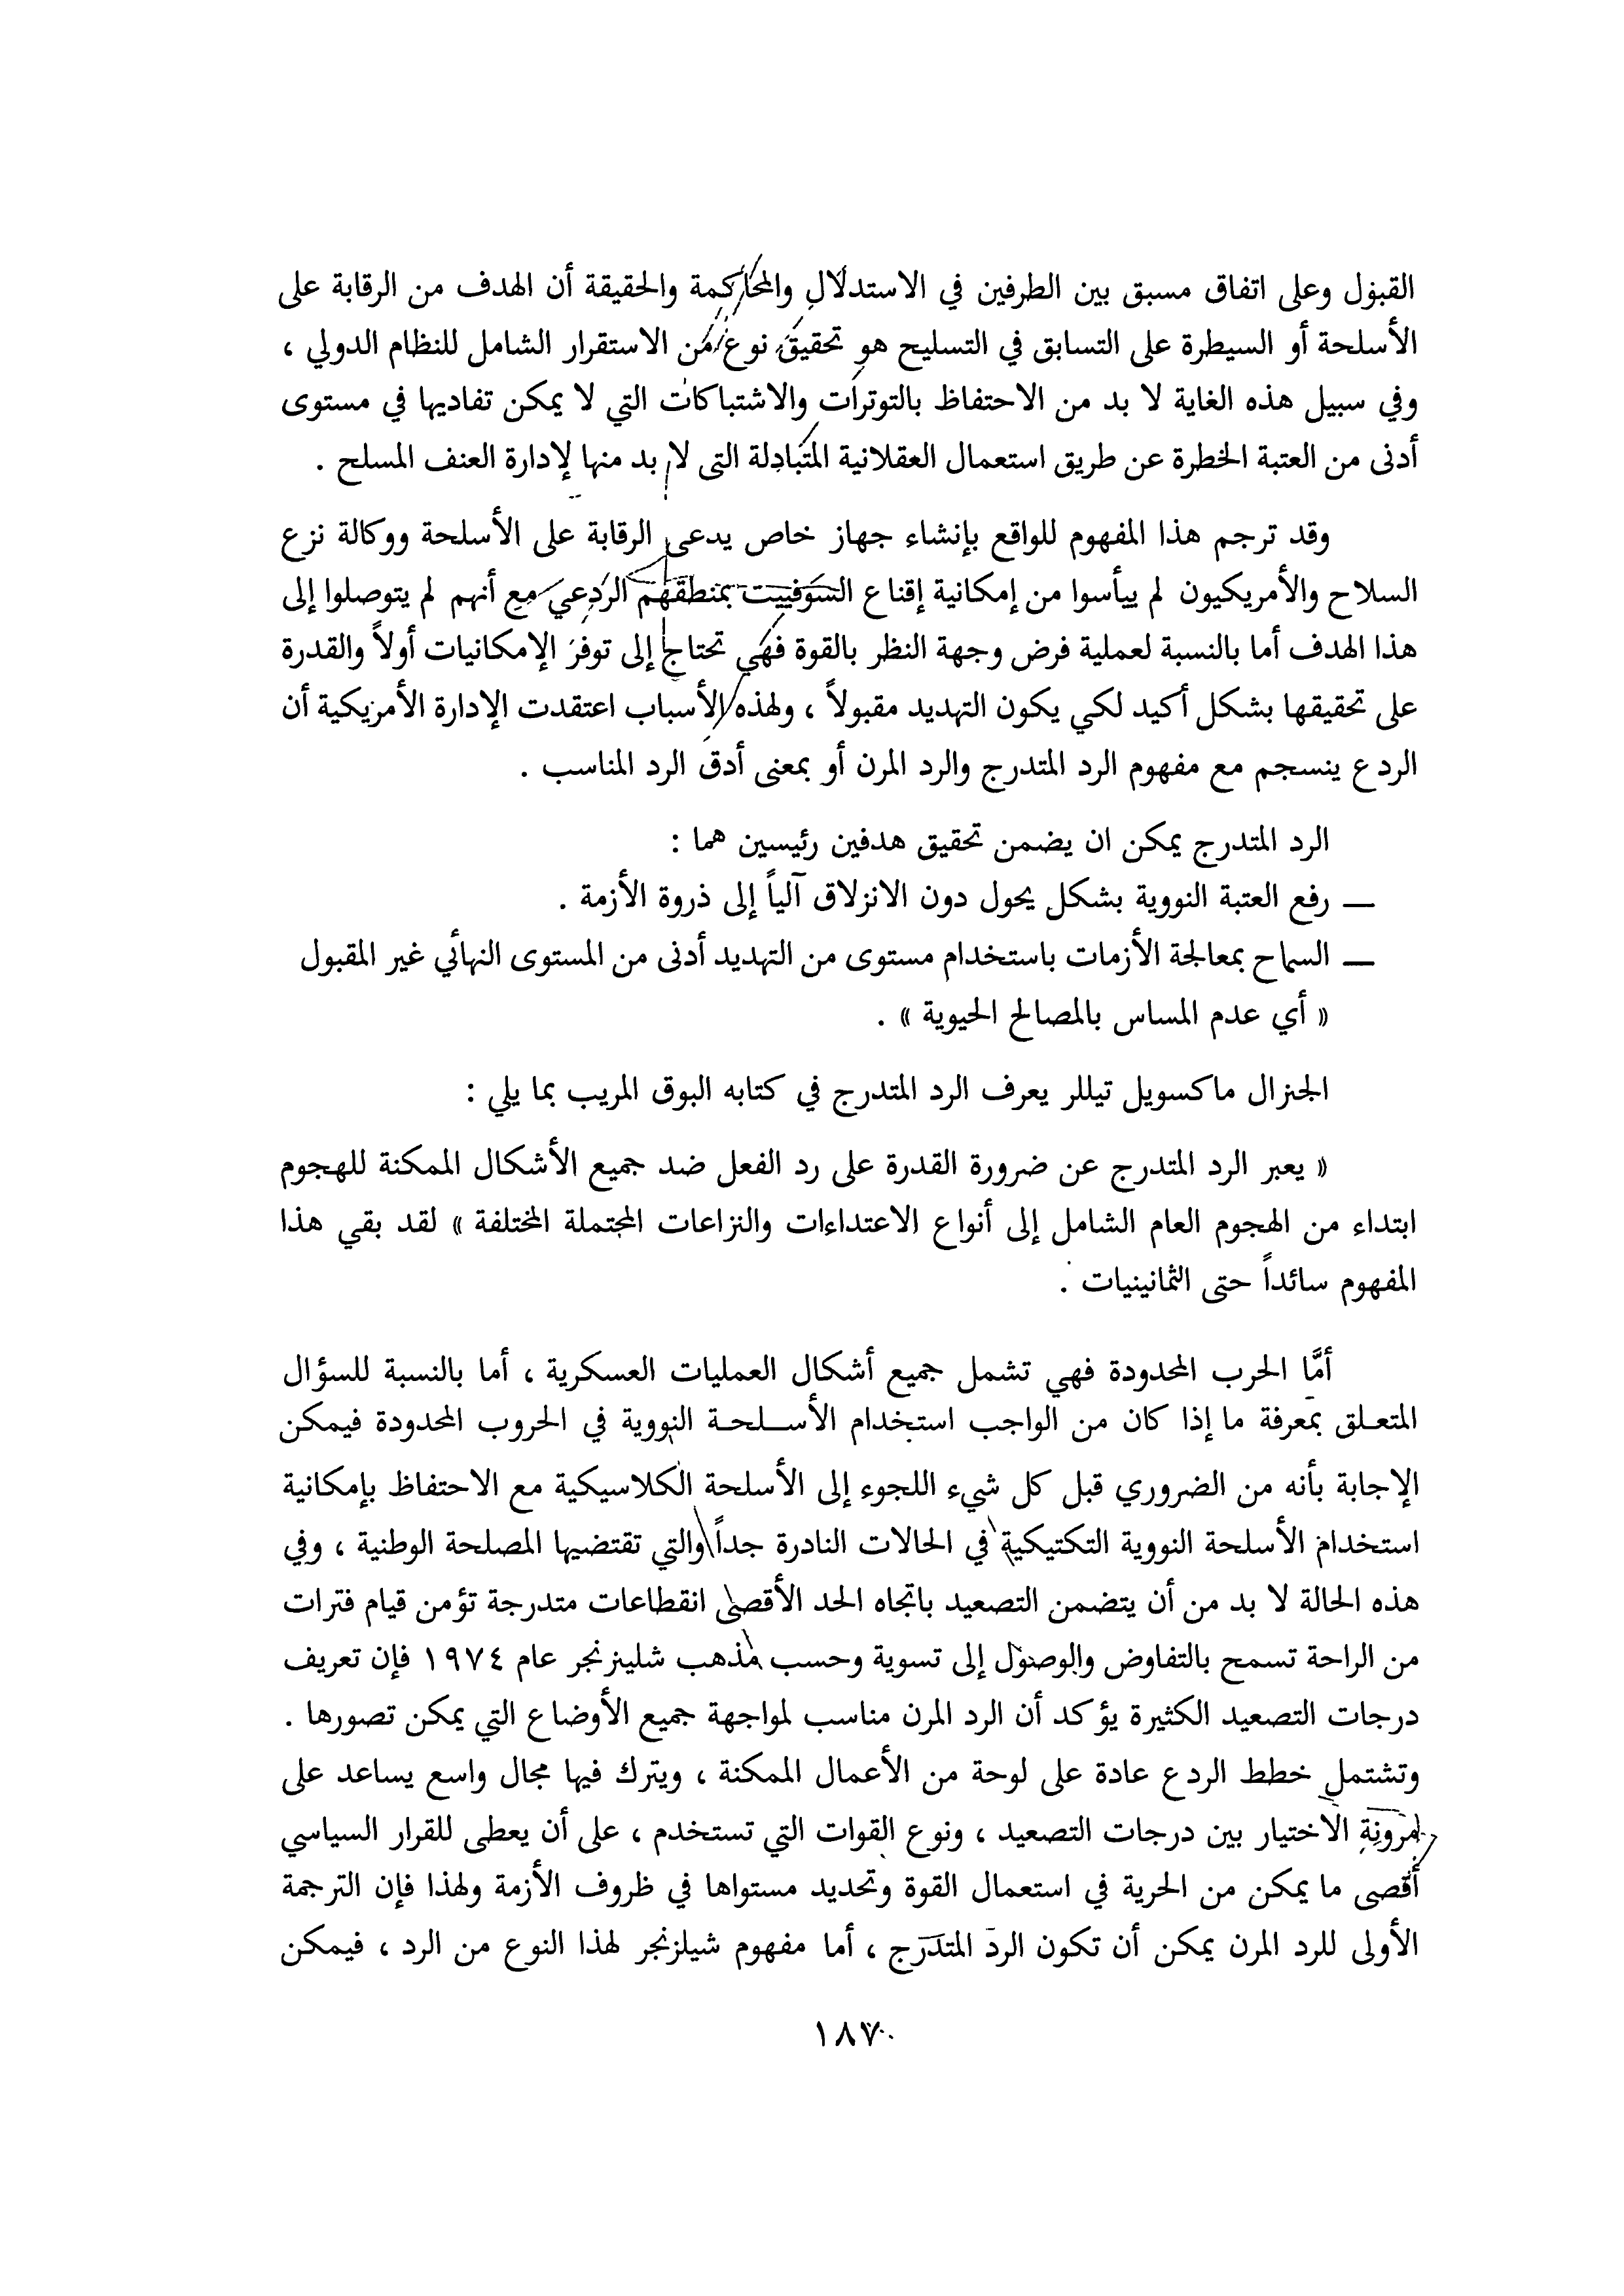 القبول وعلى اتفاق مسبق بين الطرفين في الاستدلال والمحاكمة والحقيقة أن الهدف من الرقابة على
الأسلحة أو السيطرة على التسابق في التسليح هو تحقيق نوع من الاستقرار الشامل للنظام الدولي ،
وفي سبيل هذه الغاية لا بد من الاحتفاظ بالتوترات والاشتباكات التي لا يمكن تفاديها في مستوى
أدنى من العتبة الخطرة عن طريق استعمال العقلانية المتبادلة التى لا بد منها لإدارة العنف المسلح .
وقد ترجم هذا المفهوم للواقع بإنشاء جهاز خاص يدعى الرقابة على الأسلحة ووكالة نزع
السلاح والأمريكيون لم ييأسوا من إمكانية إقناع السوفييت بمنطقهم الردعي مع أنهم لم يتوصلوا إلى
هذا الهدف أما بالنسبة لعملية فرض وجهة النظر بالقوة فهي تحتاج إلى توفر الإمكانيات أولاً والقدرة
على تحقيقها بشكل أكيد لكي يكون التهديد مقبولاً ، ولهذه الأسباب اعتقدت الإدارة الأمريكية أن
الردع ينسجم مع مفهوم الرد المتدرج والرد المرن أو بمعنى أدق الرد المناسب .
الرد المتدرج يمكن ان يضمن تحقيق هدفين رئيسين هما :
— رفع العتبة النووية بشكل يحول دون الانزلاق آلياً إلى ذروة الأزمة .
— السماح بمعالجة الأزمات باستخدام مستوى من التهديد أدنى من المستوى النهائي غير المقبول
« أي عدم المساس بالمصالح الحيوية » .
الجنرال ماكسويل تيللر يعرف الرد المتدرج في كتابه البوق المريب بما يلي :
« يعبر الرد المتدرج عن ضرورة القدرة على رد الفعل ضد جميع الأشكال الممكنة للهجوم
ابتداء من الهجوم العام الشامل إلى أنواع الاعتداءات والنزاعات المحتملة المختلفة » لقد بقي هذا
المفهوم سائداً حتى الثمانينيات .
أمَّا الحرب المحدودة فهي تشمل جميع أشكال العمليات العسكرية ، أما بالنسبة للسؤال
المتعلق بمعرفة ما إذا كان من الواجب استخدام الأسلحة النووية في الحروب المحدودة فيمكن
الإجابة بأنه من الضروري قبل كل شيء اللجوء إلى الأسلحة الكلاسيكية مع الاحتفاظ بإمكانية
استخدام الأسلحة النووية التكتيكية في الحالات النادرة جداً والتي تقتضيها المصلحة الوطنية ، وفي
هذه الحالة لا بد من أن يتضمن التصعيد باتجاه الحد الأقصى انقطاعات متدرجة تؤمن قيام فترات
من الراحة تسمح بالتفاوض والوصول إلى تسوية وحسب مذهب شلينزنجر عام ١٩٧٤ فإن تعريف
درجات التصعيد الكثيرة يؤكد أن الرد المرن مناسب لمواجهة جميع الأوضاع التي يمكن تصورها .
وتشتمل خطط الردع عادة على لوحة من الأعمال الممكنة ، ويترك فيها مجال واسع يساعد على
مرونة الاختيار بين درجات التصعيد ، ونوع القوات التي تستخدم ، على أن يعطى للقرار السياسي
أقصى ما يمكن من الحرية في استعمال القوة وتحديد مستواها في ظروف الأزمة ولهذا فإن الترجمة
الأولى للرد المرن يمكن أن تكون الرد المتدرج ، أما مفهوم شيلزنجر لهذا النوع من الرد ، فيمكن
١٨٧٠